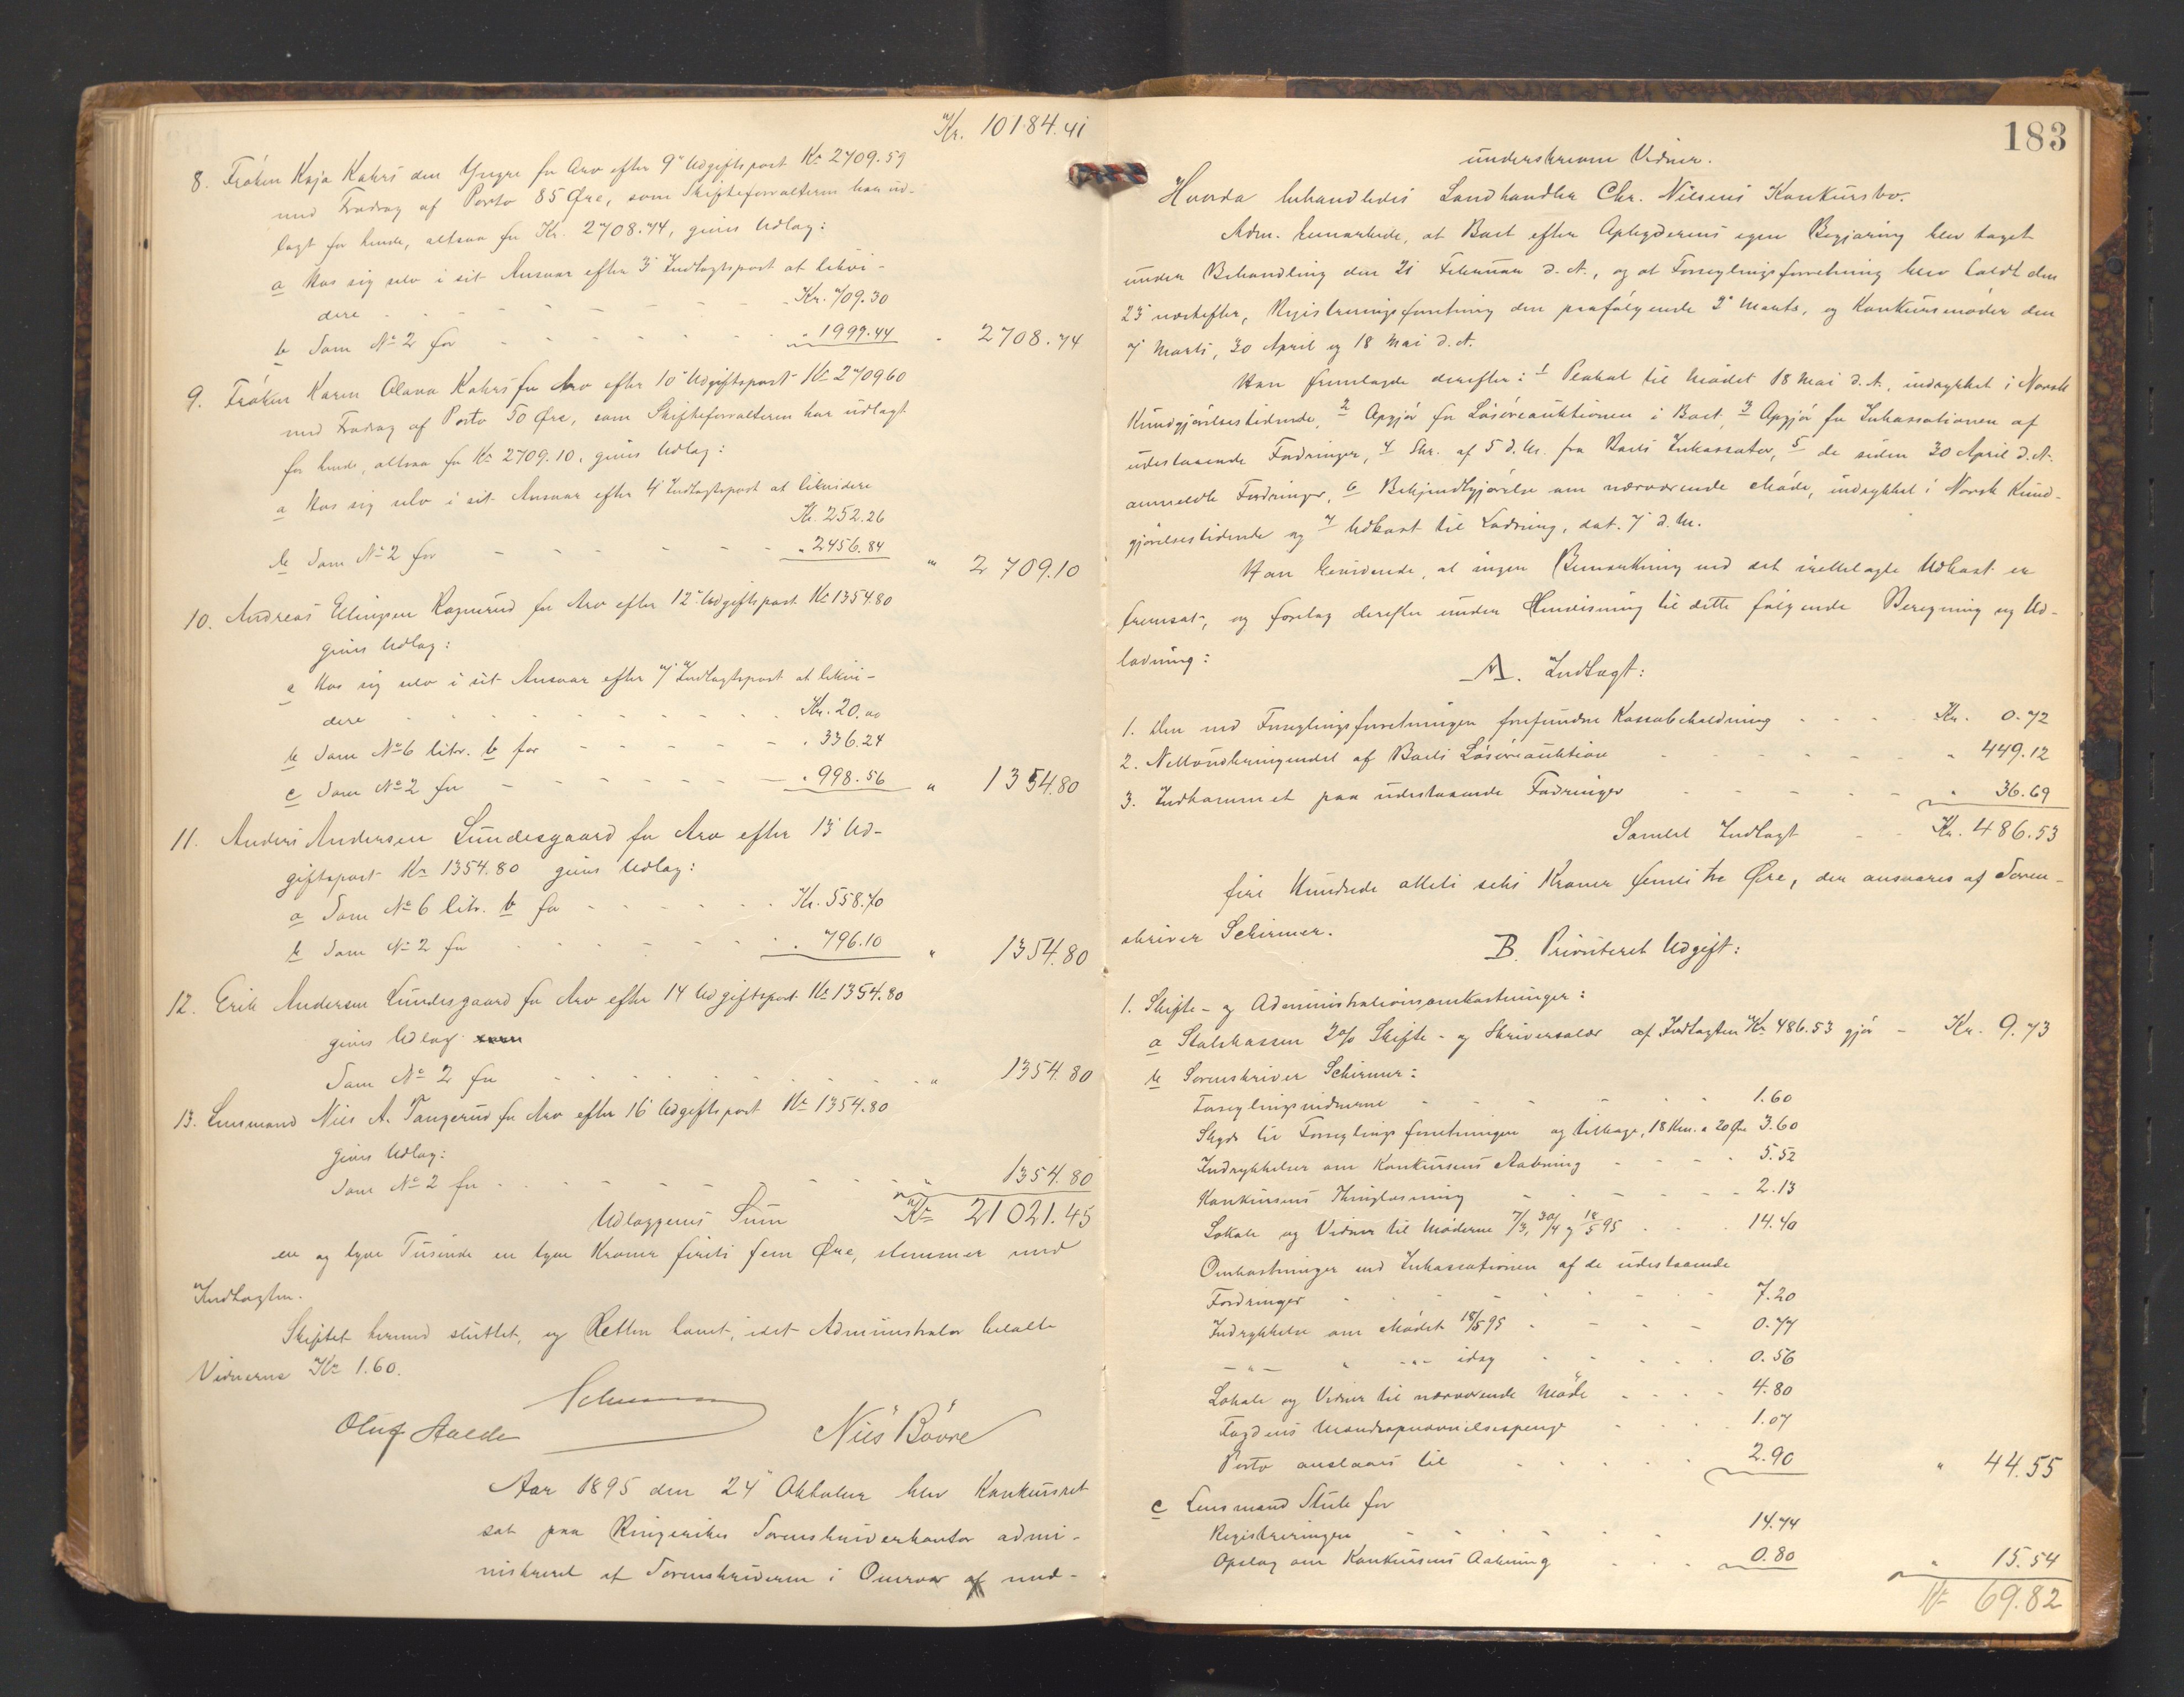 Kr. 10184.41
8. Frøken Kaja Kahrs den Yngre for Arv efter 9' Udgiftspost Kr 2709.59
med Fradrag af Porto 85 Øre, som Skifteforvalteren har ud-
lagt for hende, altsaa for Kr. 2708.74, gives Udlæg:
a Hos sig selv i sit Ansvar efter 3' Indtægtspost at likvi-
dere Kr. 709.30
b Som No 2 for " 1999.44 " 2708.74
9. Frøken Karen Olava Kahrs for Arv efter 10' Udgiftspost Kr 2709 60
med Fradrag af Porto 50 Øre, som Skifteforvalteren har udlagt
for hende, altsaa for Kr 2709.10, gives Udlæg:
a Hos sig selv i sit Ansvar efter 4' Indtægtspost at likvidere
Kr. 252.26
b Som No 2 for " 2456.84 " 2709.10
10. Andreas Ellingsen Rognerud for Arv efter 12' Udgiftspost Kr 1354.80
gives Udlæg:
a Hos sig selv i sit Ansvar efter 7' Indtægtspost at likvi-
dere Kr. 20.00
b Som No 6 litr. b for " 336.24
c Som No 2 for " 998.56 " 1354.80
11. Anders Andersen Lundesgaard for Arv efter 13' Ud-
giftspost Kr 1354.80 gives Udlæg:
a Som No 6 litr. b for Kr. 558.70
b Som No 2 for " 796.10 " 1354.80
12. Erik Andersen Lundesgaard for Arv efter 14 Udgiftspost Kr 1354.80
gives Udlæg
Som No 2 for " 1354.80
13. Lensmand Niels A. Tangerud for Arv efter 16' Udgiftspost Kr 1354.80
gives Udlæg:
Som No 2 for " 1354.80
Udlæggenes Sum Kr 21021.45
en og tyve Tusinde en tyve Kroner firti fem Øre, stemmer med
Indtægten.
Skiftet hermed sluttet, og Retten hævet, idet Administrator betalte
Vidnerne Kr 1.60.
Schirmer
Oluf Aalde Niels Bövre
Aar 1895 den 24' Oktober blev Konkursret
sat paa Ringerikes Sorenskriverkontor admi-
nistreret af Sorenskriveren i Overvær af med-
183
underskrevne Vidner.
Hvorda behandledes Landhandler Chr. Nilsens Konkursbo.
Adm. bemærkede, at Boet efter Opbyderens egen Begjæring blev taget
under Behandling den 21 Februar d. A., og at Forseglingsforretning blev holdt den
23' næstefter, Registreringsforretning den paafølgende 2' Marts, og Konkursmøder den
7' Marts, 30 April og 18 Mai d. A.
Han fremlagde derefter: 1 Proklam til Mødet 18 Mai d. A., indrykket i Norsk
Kundgjørelsestidende, 2 Opgjør for Løsøreauktionen i Boet, 3 Opgjør for Inkassationen af
udestaaende Fordringer, 4 Skr. af 5 d. M. fra Boets Inkassator, 5 de siden 30 April d. A.
anmeldte Fordringer, 6 Bekjendtgjørelse om nærværende Møde, indrykket i Norsk Kund-
gjørelsestidende og 7 Udkast til Lodning, dat. 7' d. M.
Han henviste, at ingen Bemærkning ved det irettelagte Udkast er
fremsat, og foretog derefter under Henvisning til dette følgende Beregning og Ud-
lodning:
A. Indtægt:
1. Den ved Forseglingsforretningen forefundne Kassabeholdning Kr. 0.72
2. Nettoudbringendet af Boets Løsøreauktion " 449.12
3. Indkommet paa udestaaende Fordringer " 36.69
Samlet Indtægt Kr. 486.53
fire Hundrede otteti seks Kroner femti tre Øre, der ansvares af Soren-
skriver Schirmer.
B. Prioriteret Udgift:
1. Skifte- og Administrationsomkostninger:
a Statskassen 2% Skifte- og Skriversalær af Indtægten Kr 486.53 gjør - Kr. 9.73
b Sorenskriver Schirmer:
Forseglingsvidnerne 1.60
Skyds til Forseglingsforretningen og tilbage, 18 Km. a 20 Øre 3.60
Indrykkelser om Konkursens Aabning 5.52
Konkursens Thinglæsning 2.13
Lokale og Vidner til Møderne 7/3, 30/4 og 18/5 95 14.40
Omkostninger ved Inkassationen af de udestaaende
Fordringer 7.20
Indrykkelse om Mødet 18/5 95 0.77
-"- " -"- idag 0.56
Lokale og Vidner til nærværende Møde 4.80
Fogdens Mandsopnævnelsespenge 1.07
Porto anslaaes til 2.90 " 44.55
c Lensmand Stub for
Registreringen 14.74
Opslag om Konkursens Aabning 0.80 " 15.54
Kr 69.82